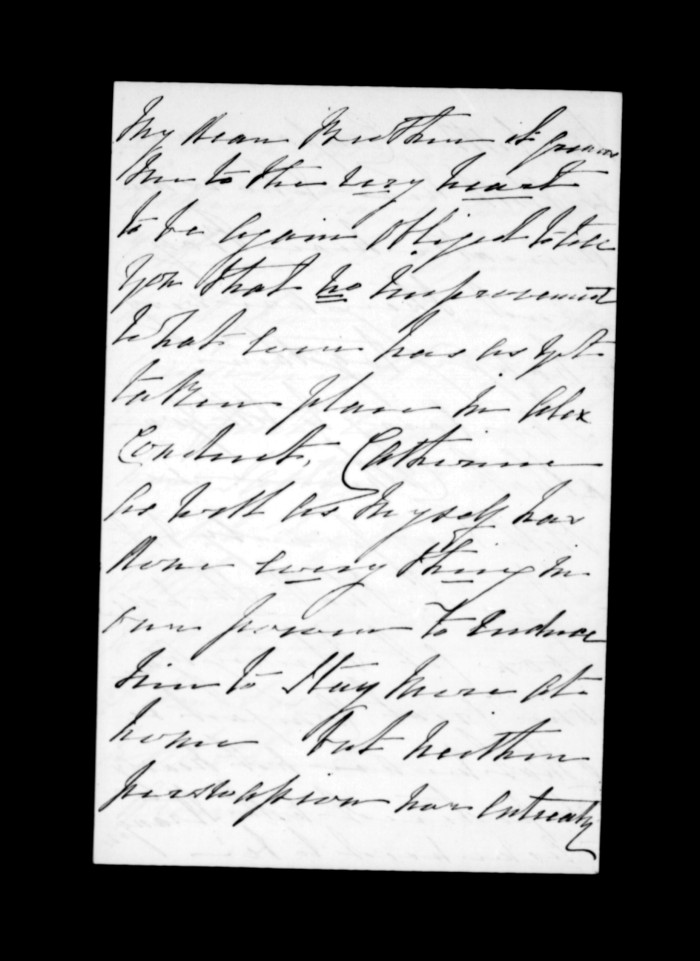 My dear Brother it grieves
me to the very heart
to be again obliged to tell
you that no improvement
what ever has as yet
taken place in Alex
Conduct, Catherine
as well as myself has
done every thing in
our power to induce
him to stay more at
home but neither
perswassion nor entreaty